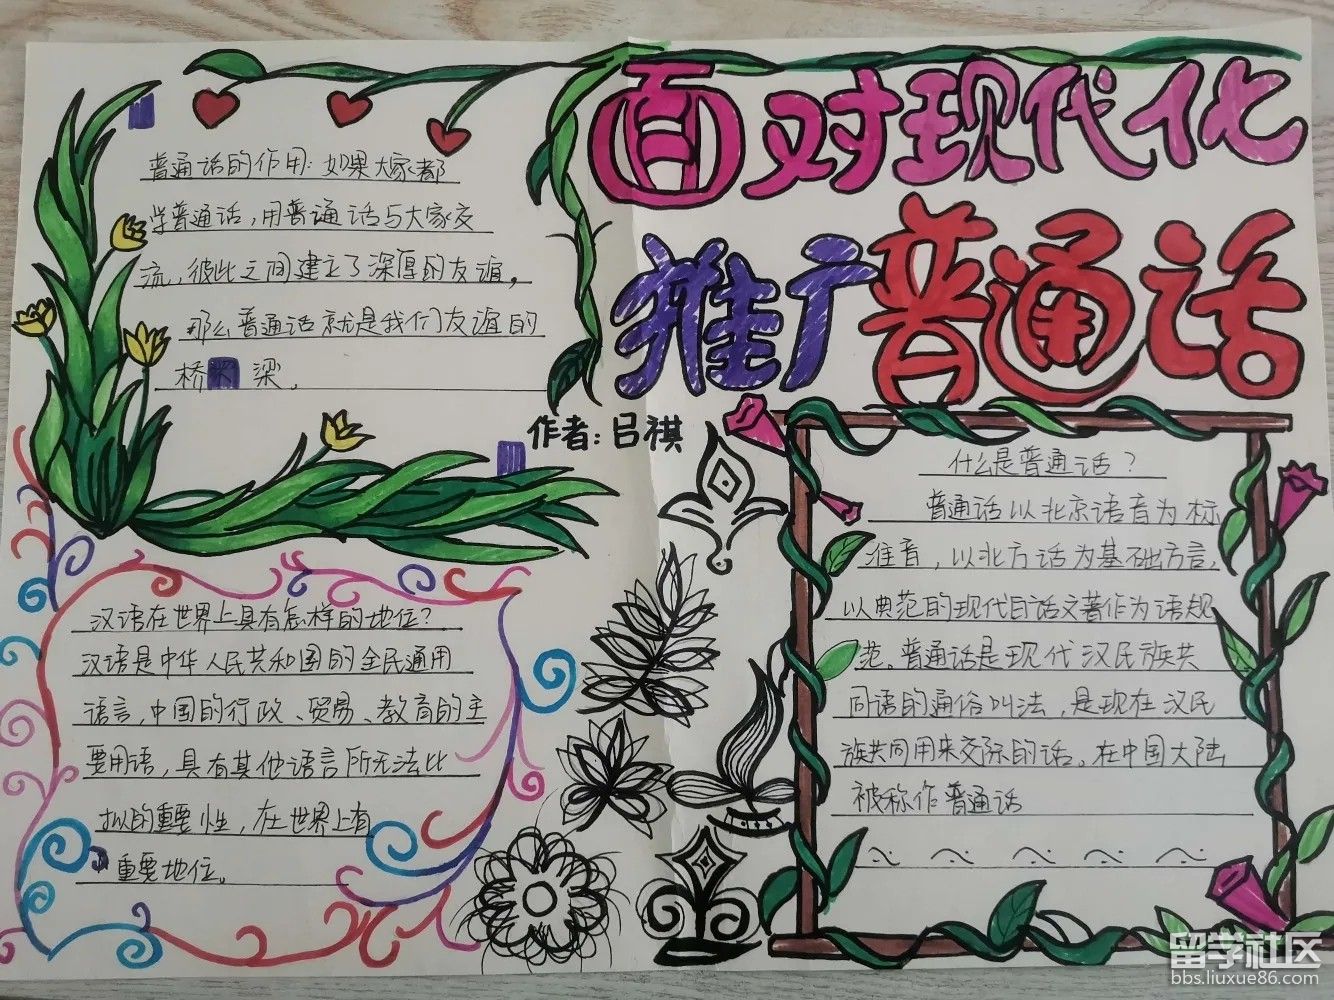 面对现代化
推广普通话
作者:吕祺
普通话的作用:如果大家都
学普通话,用普通话与大家交
流,彼此之间建立了深厚的友谊,
那么普通话就是我们友谊的
桥梁。
什么是普通话?
普通话以北京语音为标
准音,以北方话为基础方言,
以典范的现代白话文著作为语规
范。普通话是现代汉民族共
同语的通俗叫法,是现在汉民
族共同用来交际的话。在中国大陆
被称作普通话
汉语在世界上具有怎样的地位?
汉语是中华人民共和国的全民通用
语言,中国的行政、贸易、教育的主
要用语,具有其他语言所无法比
拟的重要性,在世界上有
重要地位。
留学社区
bbs.liuxue86.com